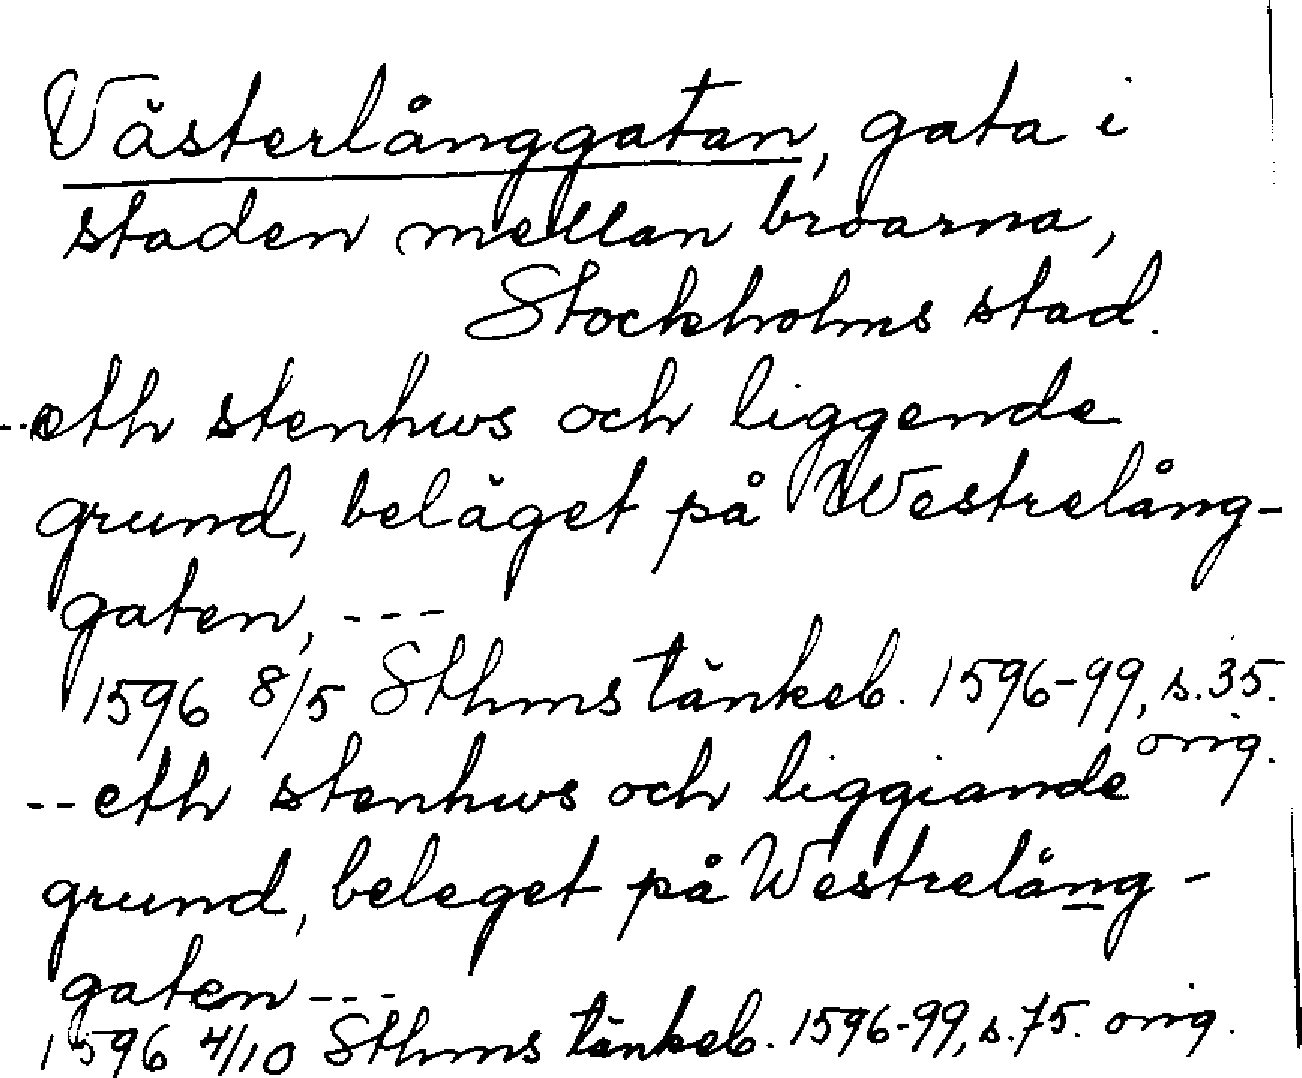 Västerlånggatan, gata i
staden mellan broarna,
Stockholms stad.
--eth stenhws och liggende
grund, beläget på Westrelång-
gaten, ---
1596 8/5 Sthms tänkeb. 1596-99, s. 35.
orig.
--eth stenhws och liggiande
grund, beleget på Westrelång-
gaten ---
1596 4/10 Sthms tänkeb. 1596-99, s. 75. orig.